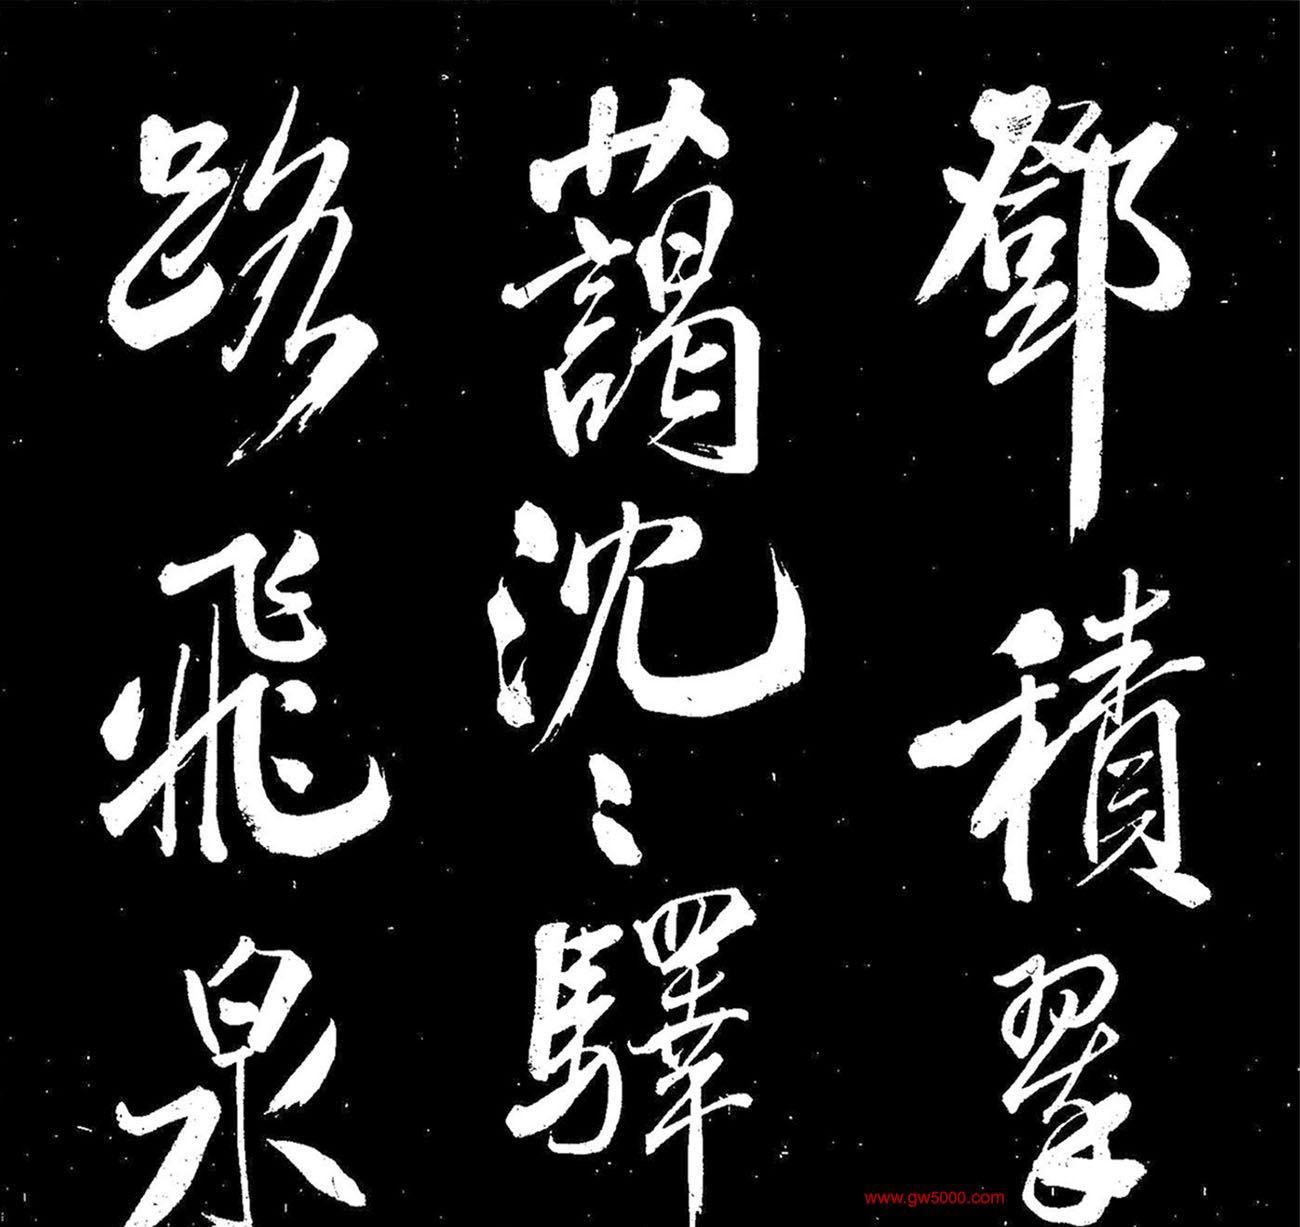 鄧積翠
藹沈〻驛
路飛泉
www.gw5000.com